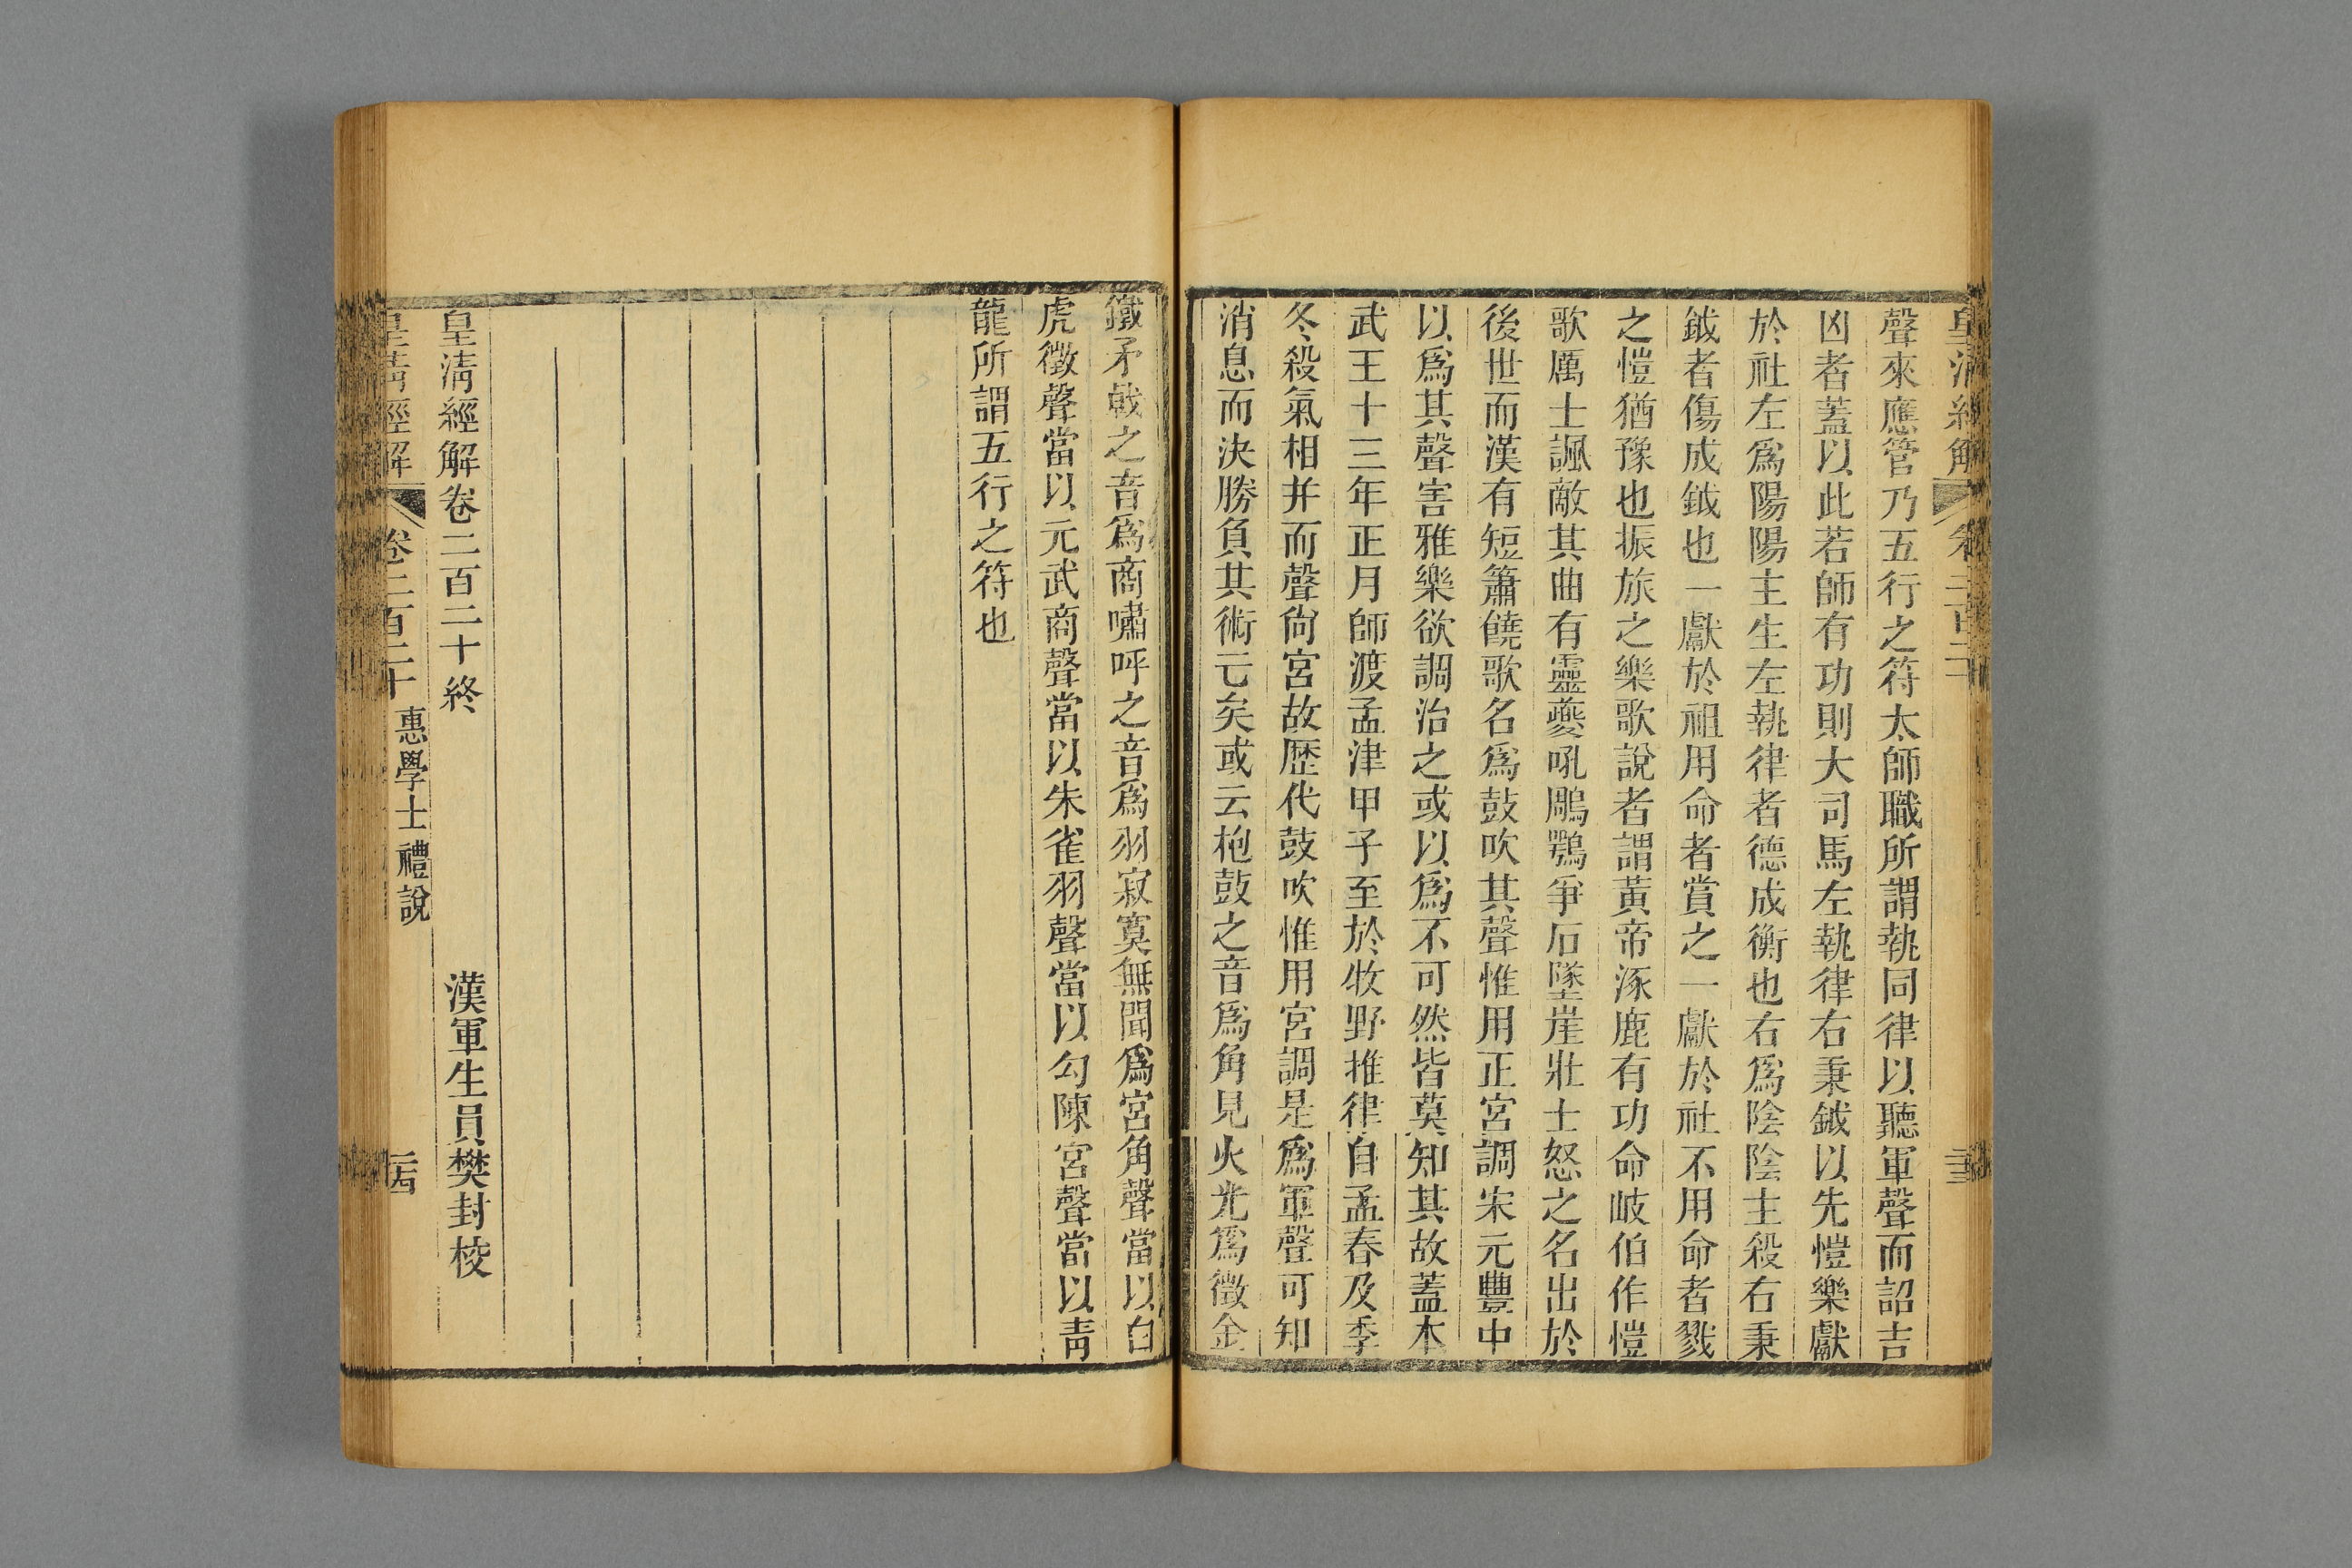 皇清經解 卷二百二十
聲來應管乃五行之符太師職所謂執同律以聽軍聲而詔吉
凶者蓋以此若師有功則大司馬左執律右秉鉞以先愷樂獻
於社左爲陽陽主生左執律者德成衡也右爲陰陰主殺右秉
鉞者傷成鉞也一獻於祖用命者賞之一獻於社不用命者戮
之愷猶豫也振旅之樂歌說者謂黃帝涿鹿有功命岐伯作愷
歌厲士諷敵其曲有靈夔吼鵰鶚爭石墜崖壯士怒之名出於
後世而漢有短簫鐃歌名爲鼓吹其聲惟用正宮調宋元豐中
以爲其聲害雅樂欲調治之或以爲不可然皆莫知其故蓋本
武王十三年正月師渡孟津甲子至於牧野推律自孟春及季
冬殺氣相并而聲尙宮故歷代鼓吹惟用宮調是爲軍聲可知
消息而決勝負其術亡矣或云枹鼓之音爲角見火光爲徵金
鐵矛戟之音爲商嘯呼之音爲羽寂寞無聞爲宮角聲當以白
虎徵聲當以元武商聲當以朱雀羽聲當以勾陳宮聲當以靑
龍所謂五行之符也
皇淸經解卷二百二十終 漢軍生員樊封校
皇淸經解 卷二百二十 惠學士禮說 二十四